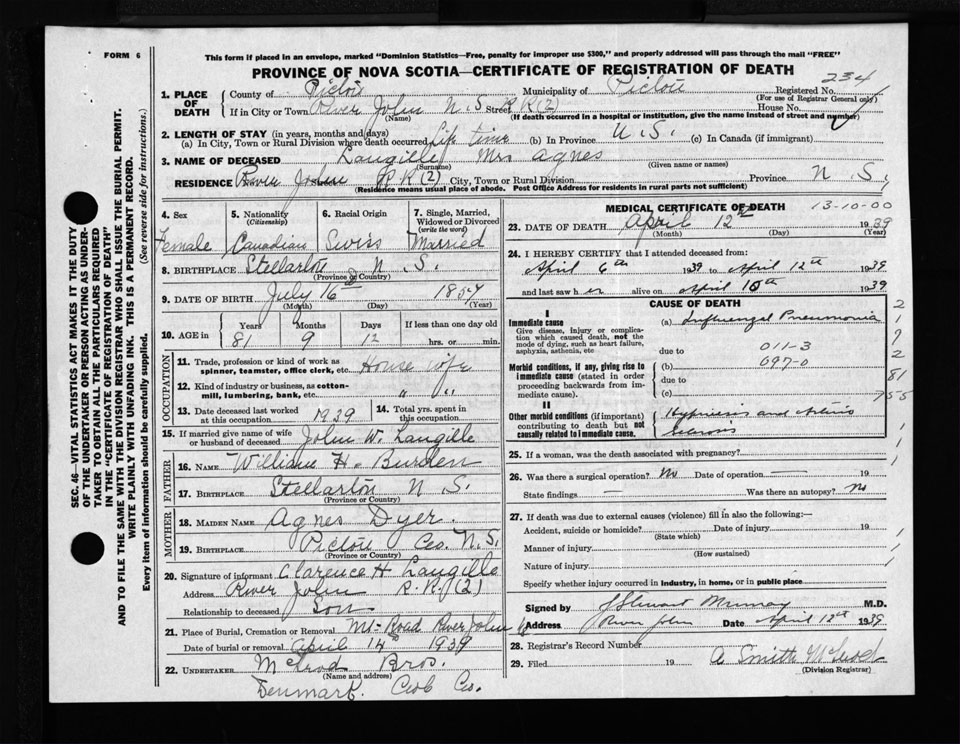 FORM 6
This form if placed in an envelope, marked "Dominion Statistics—Free, penalty for improper use $300," and properly addressed will pass through the mail "FREE"
PROVINCE OF NOVA SCOTIA—CERTIFICATE OF REGISTRATION OF DEATH
234
1. PLACE OF DEATH
County of Pictou Municipality of Pictou Registered No.
(For use of Registrar General only)
If in City or Town River John N.S. Street R R (2) House No.
(Name) (If death occurred in a hospital or institution, give the name instead of street and number)
2. LENGTH OF STAY (in years, months and days)
(a) In City, Town or Rural Division where death occurred Life time (b) In Province N.S. (c) In Canada (if immigrant)
3. NAME OF DECEASED Langille Mrs Agnes
(Surname) (Given name or names)
RESIDENCE River John R R (2) City, Town or Rural Division Province N S
(Residence means usual place of abode. Post Office Address for residents in rural parts not sufficient)
4. Sex Female
5. Nationality (Citizenship) Canadian
6. Racial Origin Swiss
7. Single, Married, Widowed or Divorced (write the word) Married
8. BIRTHPLACE Stellarton N.S.
(Province or Country)
9. DATE OF BIRTH July 16th 1857
(Month) (Day) (Year)
10. AGE in Years Months Days If less than one day old
81 9 12 hrs. or min.
OCCUPATION
11. Trade, profession or kind of work as spinner, teamster, office clerk, etc. House wife
12. Kind of industry or business, as cotton-mill, lumbering, bank, etc. " "
13. Date deceased last worked at this occupation 1939
14. Total yrs. spent in this occupation
15. If married give name of wife or husband of deceased John W. Langille
FATHER
16. NAME William H. Burden
17. BIRTHPLACE Stellarton N S.
(Province or Country)
MOTHER
18. MAIDEN NAME Agnes Dyer.
19. BIRTHPLACE Pictou Co. N.S.
(Province or Country)
20. Signature of informant Clarence H Langille
Address River John R.R. (2)
Relationship to deceased Son
21. Place of Burial, Cremation or Removal Mt- Road River John
Date of burial or removal April 14th 1939
22. UNDERTAKER McLeod Bros.
(Name and address)
Denmark. Col. Co.
MEDICAL CERTIFICATE OF DEATH
13-10-00
23. DATE OF DEATH April 12th 1939
(Month) (Day) (Year)
24. I HEREBY CERTIFY that I attended deceased from:
April 6th 1939 to April 12th 1939
and last saw her alive on April 10th 1939
CAUSE OF DEATH
I
Immediate cause
Give disease, injury or complication which caused death, not the mode of dying, such as heart failure, asphyxia, asthenia, etc
(a) Influenzal Pneumonia
due to 011-3
Morbid conditions, if any, giving rise to immediate cause (stated in order proceeding backwards from immediate cause).
(b) 097-0
due to
(c)
II
Other morbid conditions (if important) contributing to death but not causally related to immediate cause.
sclerosis
2
1
9
2
81
755
25. If a woman, was the death associated with pregnancy?
26. Was there a surgical operation? No Date of operation — 19
State findings — Was there an autopsy? No
27. If death was due to external causes (violence) fill in also the following:—
Accident, suicide or homicide? Date of injury 19
(State which)
Manner of injury
(How sustained)
Nature of injury
Specify whether injury occurred in industry, in home, or in public place
Signed by J Stewart Murray M.D.
Address River John Date April 12th 1939
28. Registrar's Record Number
29. Filed 19 A Smith McLeod
(Division Registrar)
SEC. 46—VITAL STATISTICS ACT MAKES IT THE DUTY
OF THE UNDERTAKER OR PERSON ACTING AS UNDERTAKER TO OBTAIN ALL THE PARTICULARS REQUIRED
IN THE "CERTIFICATE OF REGISTRATION OF DEATH"
AND TO FILE THE SAME WITH THE DIVISION REGISTRAR WHO SHALL ISSUE THE BURIAL PERMIT.
WRITE PLAINLY WITH UNFADING INK. THIS IS A PERMANENT RECORD.
Every item of information should be carefully supplied. (See reverse side for instructions.)